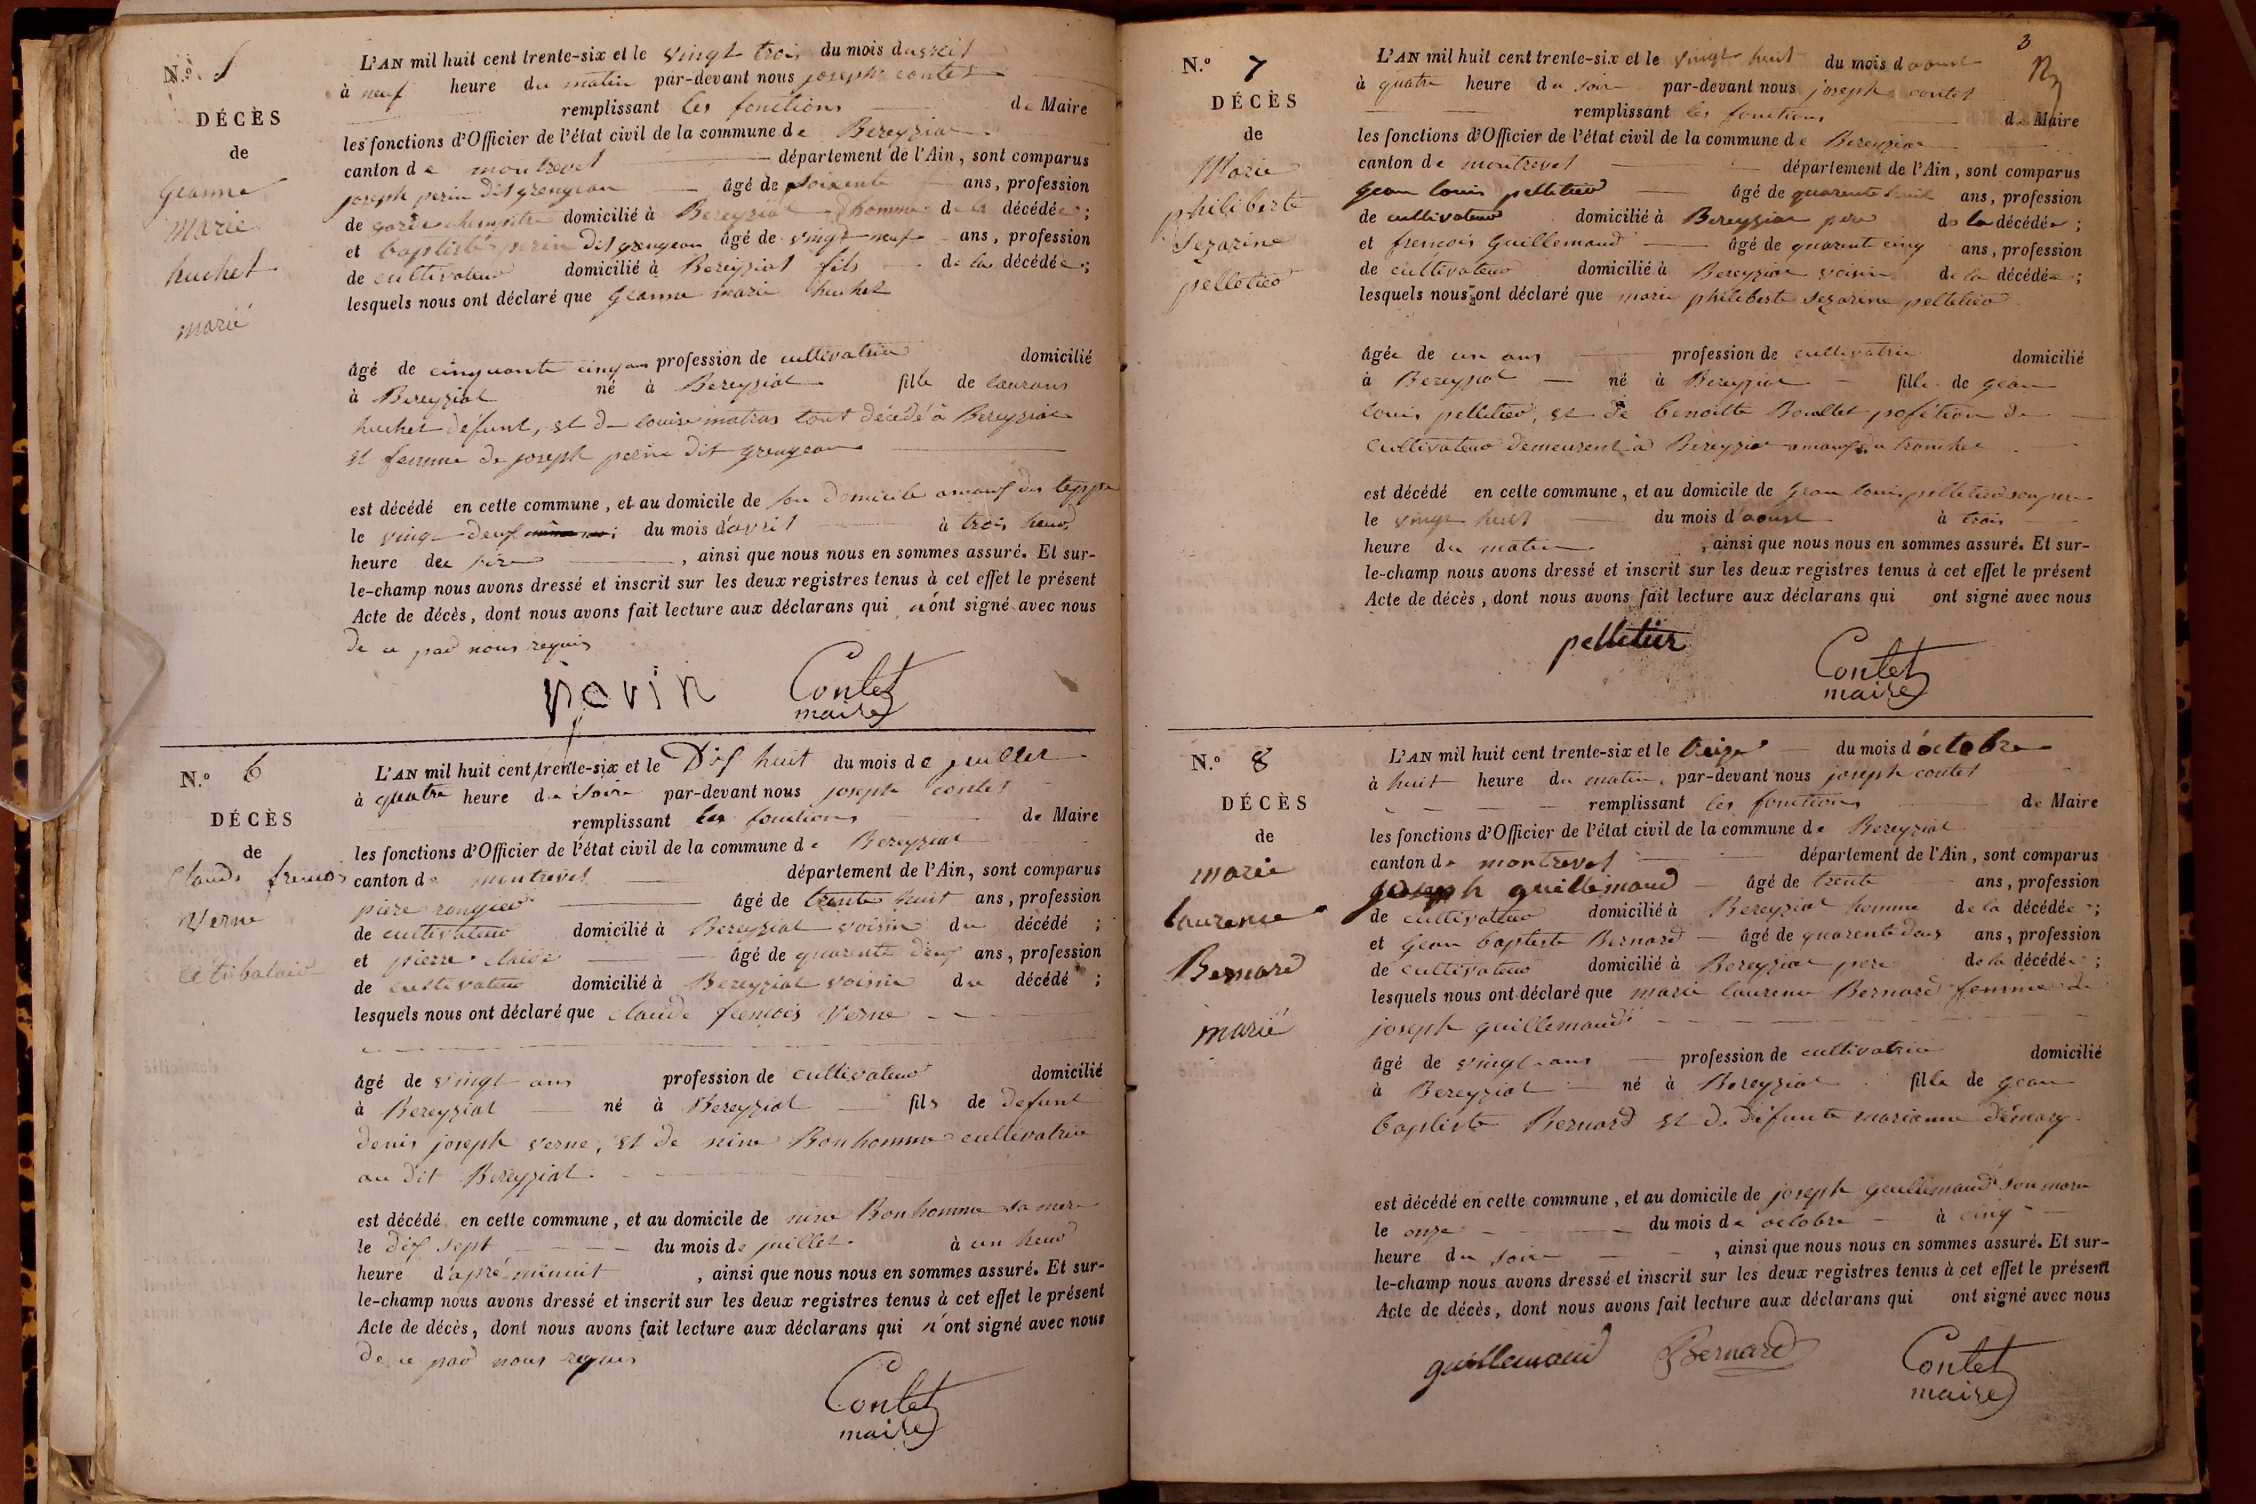 N.º 5
DÉCÈS
de
Geanne
Marie
huchet
marié
L'AN mil huit cent trente-six et le vingt trois du mois davril
à neuf heure du matin par-devant nous joseph contet
remplissant les fonctions de Maire
les fonctions d'Officier de l'état civil de la commune de Bereyziat
canton de montrevel département de l'Ain, sont comparus
joseph perin dit grengeon âgé de soixente ans, profession
de garde champitre domicilié à Bereyziat homme de la décédée;
et baptiste perin dit grengeon âgé de vingt neuf ans, profession
de cultivateur domicilié à Bereyziat fils de la décédée;
lesquels nous ont déclaré que Geanne marie huchet
âgé de cinquante cinq ans profession de cultivatrice domicilié
à Bereyziat né à Bereyziat fille de laurans
huchet défunt, et de louise matras tout décédé à Bereyziat
et femme de joseph perin dit grengeon
est décédé en cette commune, et au domicile de son domicile amauf des teppe
le vingt deuf du mois d'avril à trois heur
heure du soir, ainsi que nous nous en sommes assuré. Et sur-
le-champ nous avons dressé et inscrit sur les deux registres tenus à cet effet le présent
Acte de décès, dont nous avons fait lecture aux déclarans qui n'ont signé avec nous
de ce par nous requis
perin Contet
maire
N.º 6
DÉCÈS
de
Claude frencois
Verne
Cétibataire
L'AN mil huit cent trente-six et le Dif huit du mois de juillet
à quatre heure du soire par-devant nous joseph contet
remplissant les fonctions de Maire
les fonctions d'Officier de l'état civil de la commune de Bereyziat
canton de montrevel département de l'Ain, sont comparus
piere rongier âgé de trente huit ans, profession
de cultivateur domicilié à Bereyziat voisin du décédé;
et pierre claide âgé de quarente deuf ans, profession
de cultivateur domicilié à Bereyziat voisin du décédé;
lesquels nous ont déclaré que claude frencois Verne
âgé de vingt ans profession de cultivateur domicilié
à Bereyziat né à Bereyziat fils de defunt
denis joseph verne, et de nine Bonhomme cultivatrice
au dit Bereyziat
est décédé en cette commune, et au domicile de nine Bonhomme sa mere
le dif sept du mois de juillet à un heur
heure d'apré minuit, ainsi que nous nous en sommes assuré. Et sur-
le-champ nous avons dressé et inscrit sur les deux registres tenus à cet effet le présent
Acte de décès, dont nous avons fait lecture aux déclarans qui n'ont signé avec nous
de ce par nous requis
Contet
maire
3
N.º 7
DÉCÈS
de
Marie
philiberte
Sezarine
pelletier
L'AN mil huit cent trente-six et le vingt huit du mois daoust
à quatre heure du soir par-devant nous joseph contet
remplissant les fonctions de Maire
les fonctions d'Officier de l'état civil de la commune de Bereyziat
canton de montrevel département de l'Ain, sont comparus
Gean louis pelletier âgé de quarente huit ans, profession
de cultivateur domicilié à Bereyziat pere de la décédée;
et frencois Guillemaud âgé de quarente cinq ans, profession
de cultivateur domicilié à Bereyziat voisin de la décédée;
lesquels nous ont déclaré que marie philiberte sezarine pelletier
âgée de un ans profession de cultivatrice domicilié
à Bereyziat né à Bereyziat fille de gean
louis pelletier, et de benoitte Boullet pofétion de
cultivateur demeurent à Bereyziat amauf du tronchet
est décédé en cette commune, et au domicile de Gean louis pelletier son pere
le vingt huit du mois d'aoust à trois
heure du matin, ainsi que nous nous en sommes assuré. Et sur-
le-champ nous avons dressé et inscrit sur les deux registres tenus à cet effet le présent
Acte de décès, dont nous avons fait lecture aux déclarans qui ont signé avec nous
pelletier
Contet
maire
N.º 8
DÉCÈS
de
marie
laurence
Bernard
marié
L'AN mil huit cent trente-six et le treize du mois d'octobre
à huit heure du matin, par-devant nous joseph contet
remplissant les fonctions de Maire
les fonctions d'Officier de l'état civil de la commune de Bereyziat
canton de montrevel département de l'Ain, sont comparus
joseph guillemaud âgé de trente ans, profession
de cultivateur domicilié à Bereyziat homme de la décédée;
et Gean baptiste Bernard âgé de quarente deux ans, profession
de cultivateur domicilié à Bereyziat pere de la décédée;
lesquels nous ont déclaré que marie laurence Bernard femme de
joseph guillemaud
âgé de vingt ans profession de cultivatrice domicilié
à Bereyziat né à Bereyziat fille de gean
baptiste Bernard et de défunte marianne démary
est décédé en cette commune, et au domicile de joseph guillemaud son mari
le onze du mois de octobre à cinq
heure du soir, ainsi que nous nous en sommes assuré. Et sur-
le-champ nous avons dressé et inscrit sur les deux registres tenus à cet effet le présent
Acte de décès, dont nous avons fait lecture aux déclarans qui ont signé avec nous
guillemaud Bernard Contet
maire